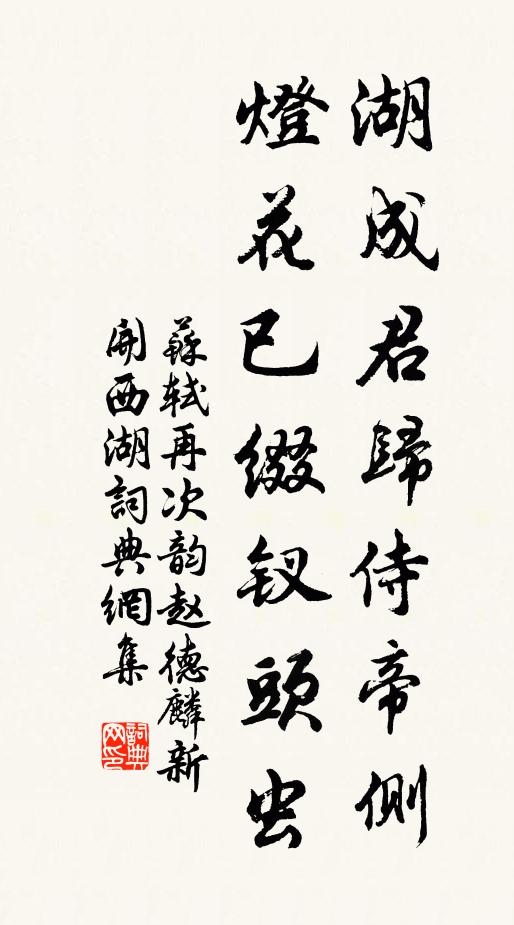 湖成君歸侍帝側
燈花已綴钗頭虫
蘇轼再次韵赵德麟新
開西湖詞典網集
詞典
网印